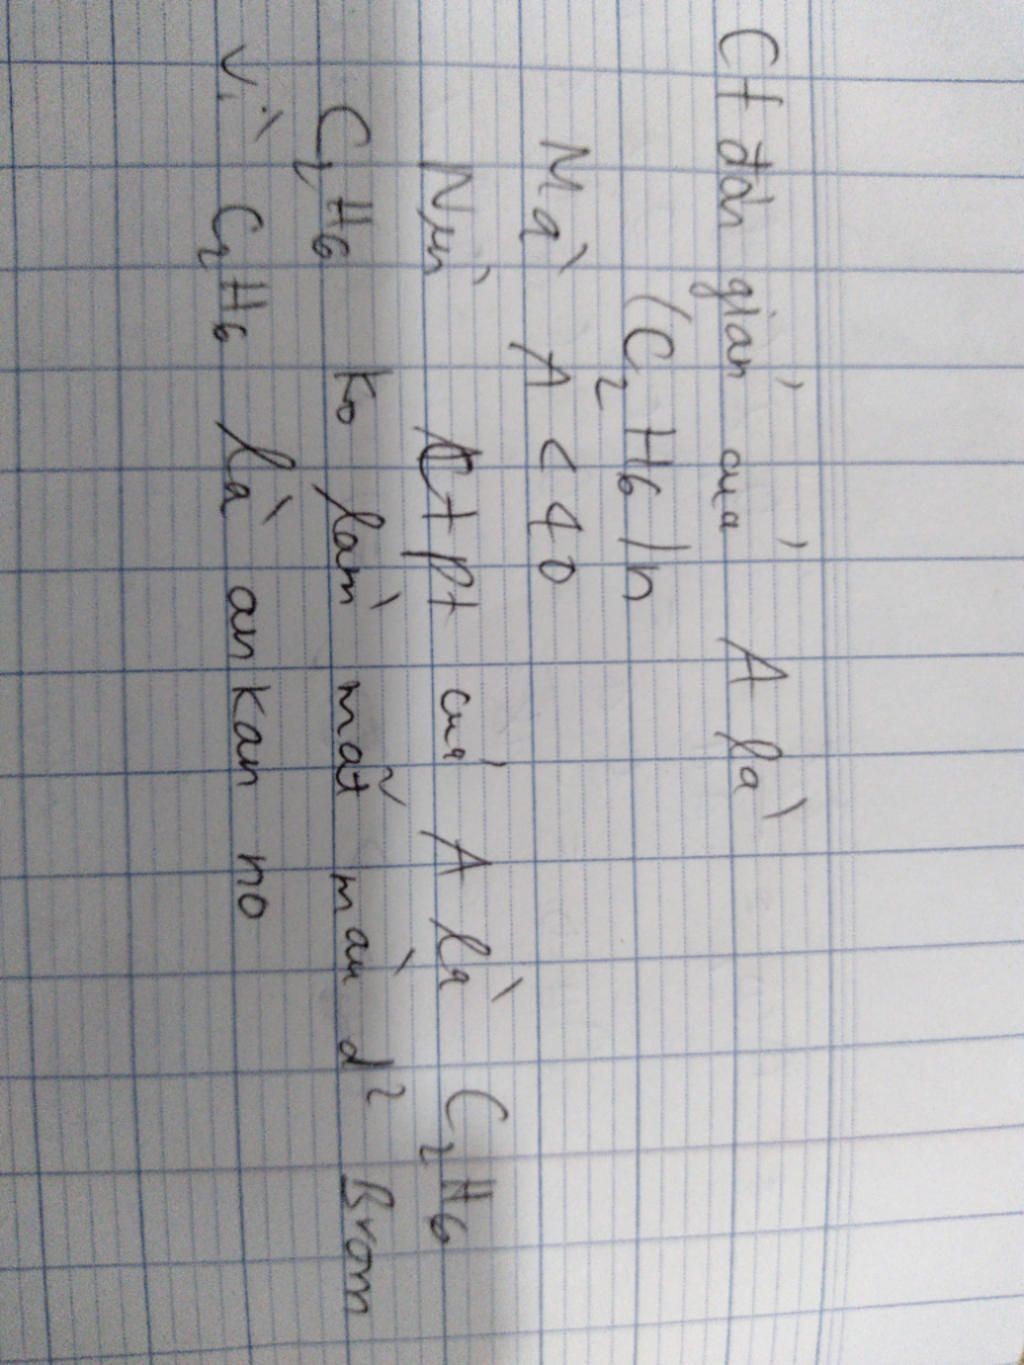 Ct đơn giản của A là
(C2H6)n
Mà A < 40
Nên Ct pt của A là C2H6
C2H6 ko làm mất màu d² Brom
Vì C2H6 là ankan no